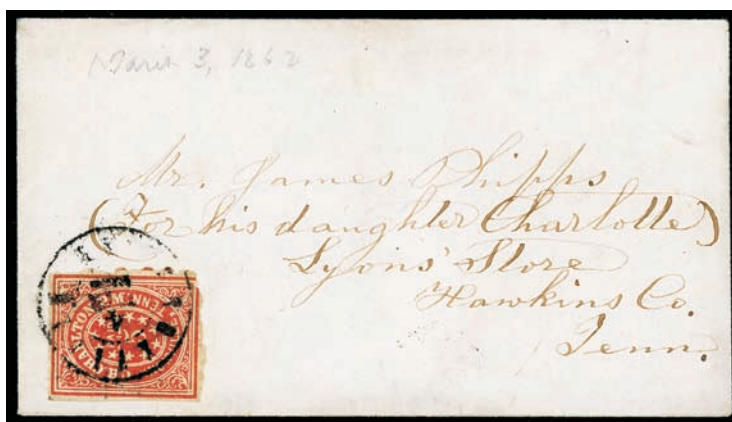 March 3, 1862
Mr. James Phipps
(For his daughter Charlotte)
Lyons' Store
Hawkins Co.
Tenn.
TENN.